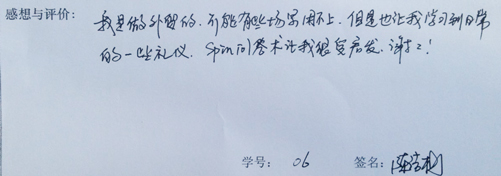 感想与评价: 我是做外贸的,可能有些场景用不上,但是也让我学习到日常
的一些礼仪。Spin问答术让我很受启发,谢谢!
学号: 06 签名: 陈